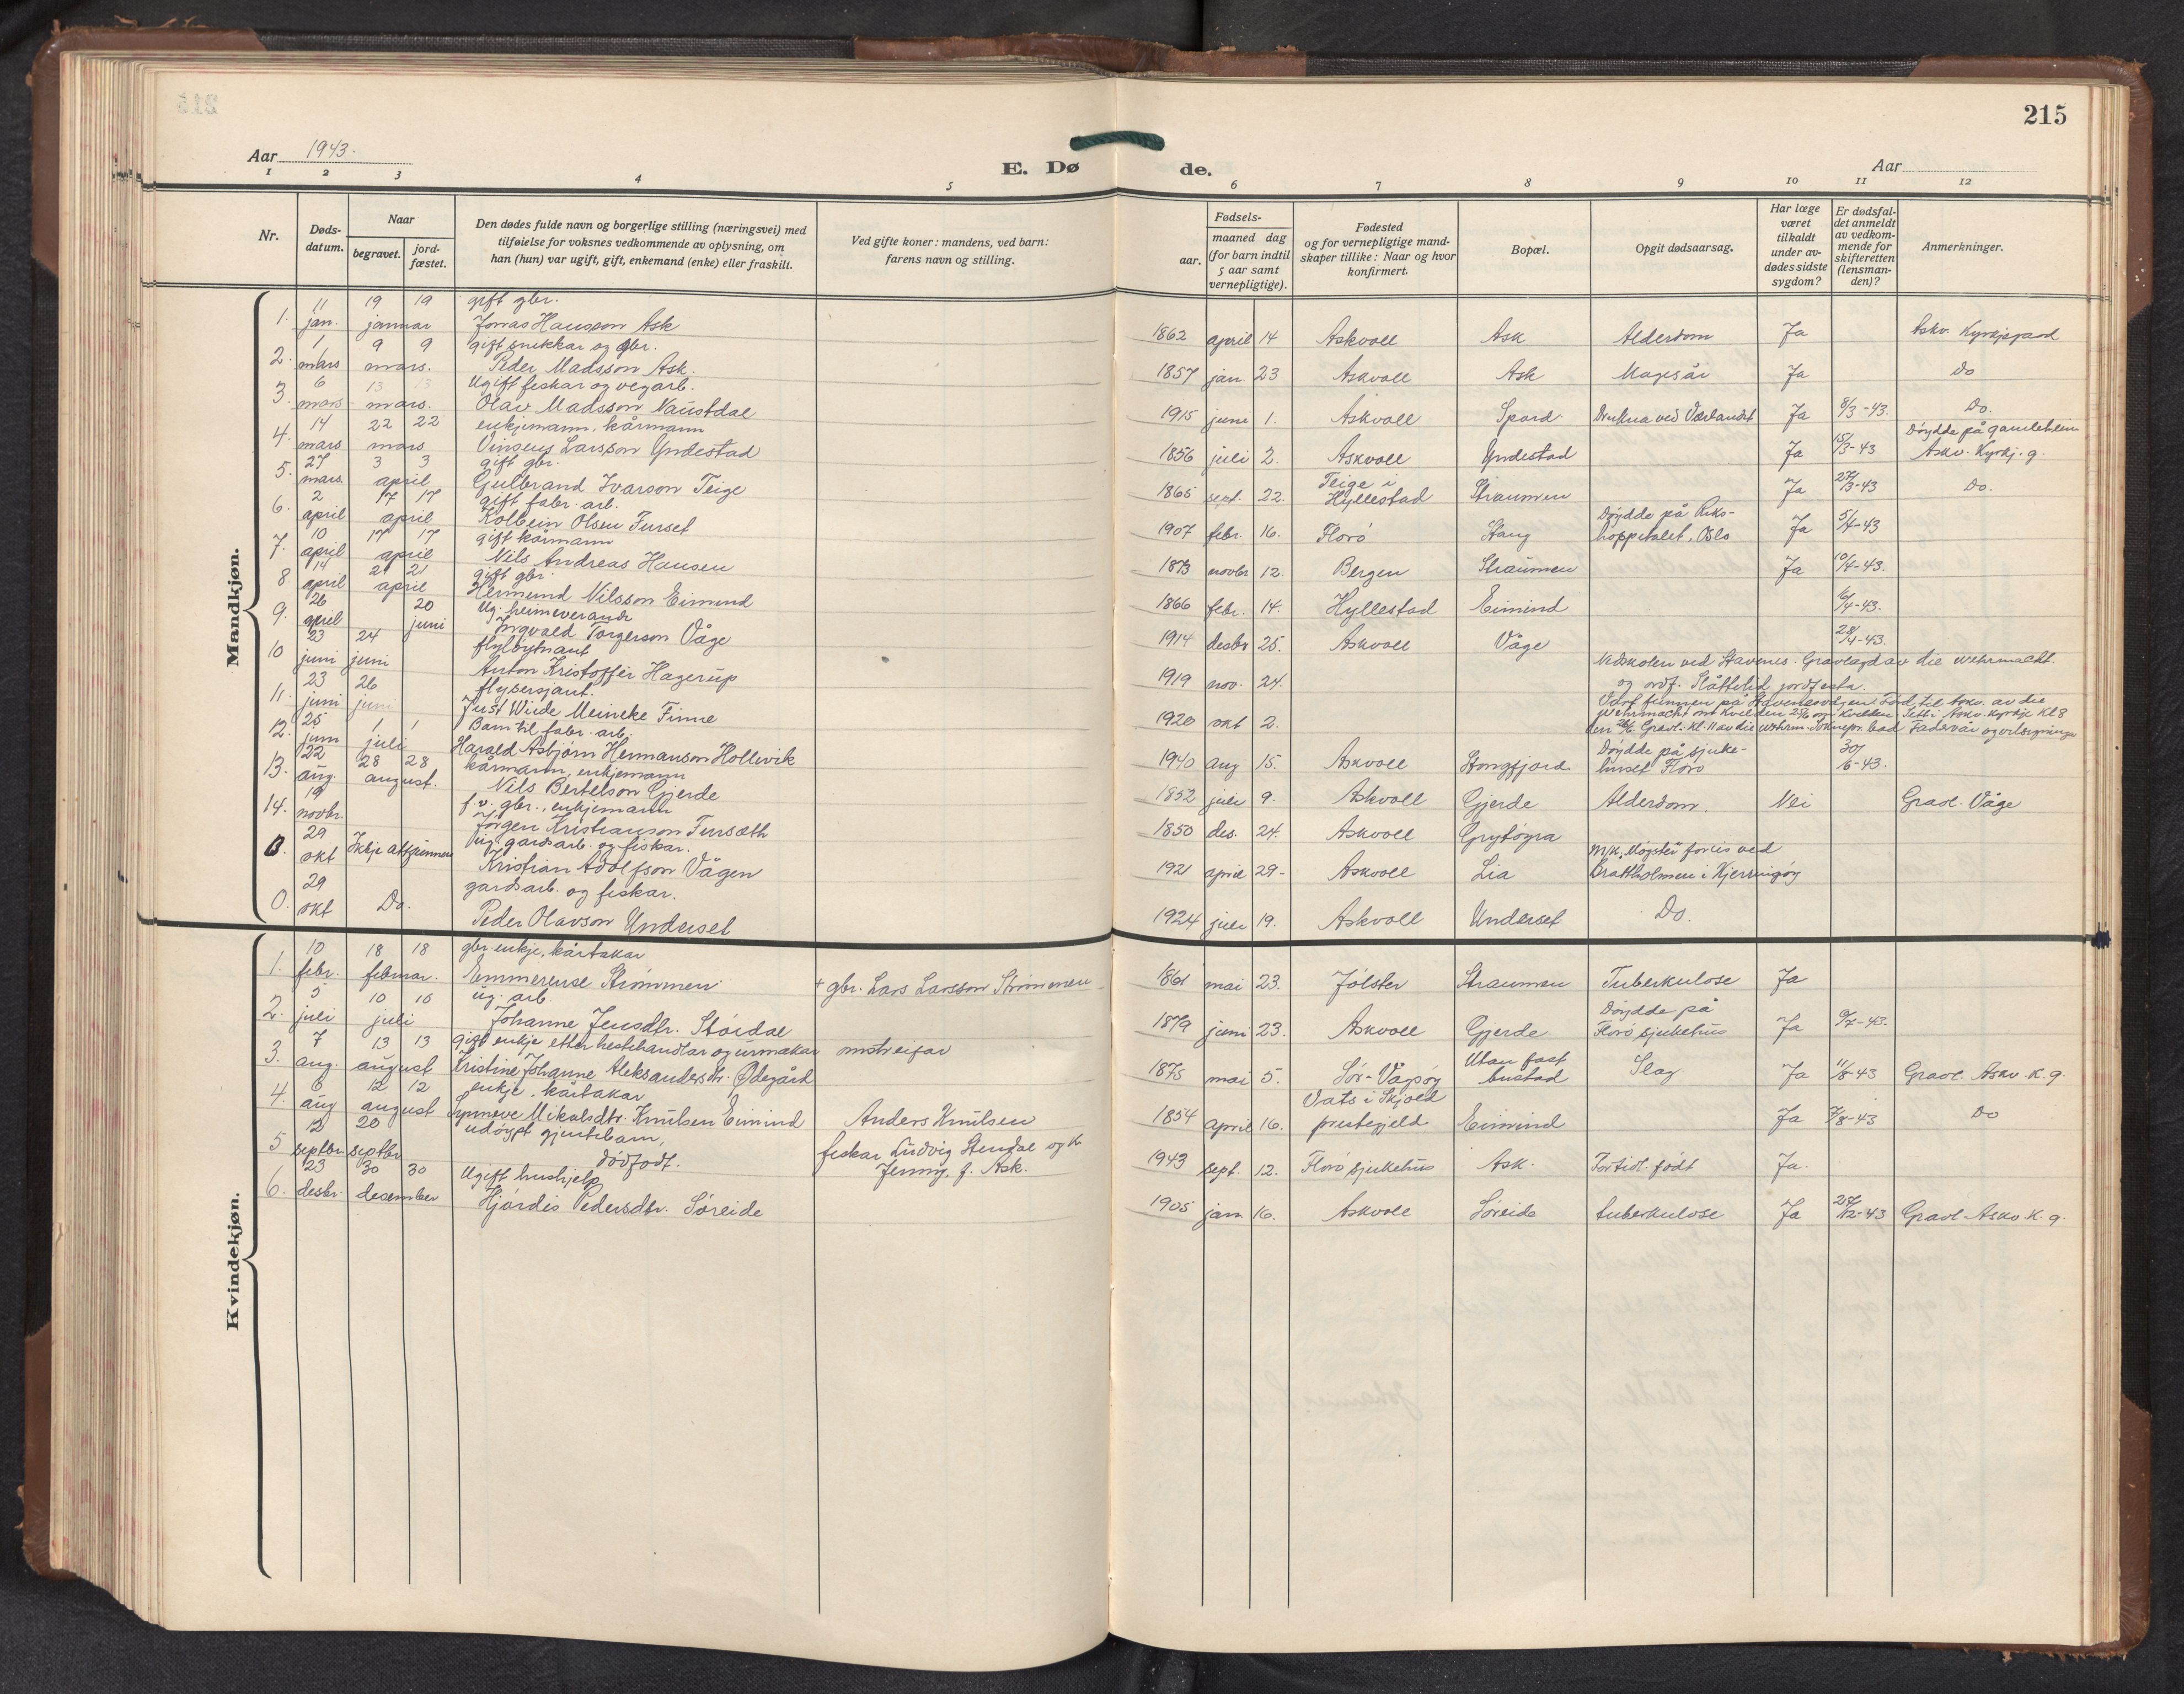 215
Aar 1943.
E. Dø
de.
Aar
1 2 3 4 5 6 7 8 9 10 11 12
Nr.
Døds-
datum.
Naar
begravet.
jord-
fæstet.
Den dødes fulde navn og borgerlige stilling (næringsvei) med
tilføielse for voksnes vedkommende av oplysning, om
han (hun) var ugift, gift, enkemand (enke) eller fraskilt.
Ved gifte koner: mandens, ved barn:
farens navn og stilling.
Fødsels-
aar.
maaned dag
(for barn indtil
5 aar samt
vernepligtige).
Fødested
og for vernepligtige mand-
skaper tillike: Naar og hvor
konfirmert.
Bopæl.
Opgit dødsaarsag.
Har læge
været
tilkaldt
under av-
dødes sidste
sygdom?
Er dødsfal-
det anmeldt
av vedkom-
mende for
skifteretten
(lensman-
den)?
Anmerkninger.
Mandkjøn.
11 19 19 gift gbr.
1. jan. januar Jonas Hansson Ask 1862 april 14 Askvoll Ask Alderdom Ja Askv. Kyrkjegard
1 9 9 gift snikkar og gbr.
2. mars mars. Peder Madsson Ask. 1857 jan. 23 Askvoll Ask Magesår Ja Do
6 13 13 Ugift fiskar og vegarb.
3. mars mars. Olav Madsson Naustdal 1915 juni 1. Askvoll Spord Drukna ved Værlandet Ja 8/3-43. Do.
14 22 22 enkjemann, kårmann Døydde på gamleheim
4. mars mars Vingeus Larsson Yndestad 1856 juli 2. Askvoll Yndestad Ja 15/3-43 Askv. Kyrkj. g.
27 3 3 gift gbr. Teige i
5. mars. april Gulbrand Ivarson Teige 1865 sept. 22. Hyllestad Straumen Ja 27/3-43 Do.
2 17 17 gift fabr. arb. Døydde på Riks-
6. april april Kolbein Olsen Furset 1907 febr. 16. Florø Stang hoppitalet, Oslo Ja 5/4-43
10 17 17 gift kårmann
7. april april Nils Andreas Hansen 1873 novbr 12. Bergen Straumen Ja 10/4-43.
14 21 21 gift gbr.
8 april april Hermund Nilsson Eimind 1866 febr. 14. Hyllestad Eimind 16/4-43.
26 20 Ug. heimeverande
9. april juni Ingvald Torgerson Våge 1914 desbr 25. Askvoll Våge 28/4-43.
23 24 flyløytnant Nedskoten ved Stavenes. Gravlagd av die wehrmacht.
10 juni juni Anton Kristoffer Hagerup 1919 nov. 24. og ordf. Slåttelid jordfesta.
23 26 flysersjant.
11. juni juni Just Wiide Meineke Finne 1920 okt 2.
25 1 1 Barn til fabr. arb. Døydde på sjuke- 30/
12. juni juli Harald Asbjørn Hermanson Hollevik 1940 aug 15. Askvoll Stongfjord huset Florø 6-43.
22 28 28 kårmann, enkjemann
13. aug. august. Nils Bertelson Gjerde 1852 juli 9. Askvoll Gjerde Alderdom. Nei Gravl. Våge
19 f.v. gbr., enkjemann
14. novbr. Jørgen Kristianson Fursæth 1850 des. 24. Askvoll Grytøyra
29 Ug. gardsarb. og fiskar. M/K. Møgster forlis ved
0. okt Ikkje attfunnen Kristian Adolfson Vågen 1921 april 29- Askvoll Lia Brattholmen i Kjerringøy
29 gardsarb. og fiskar.
0. okt Do. Peder Olavson Underset 1924 juli 19. Askvoll Underset Do.
Kvindekjøn.
10 18 18 gbr. enkje, kårtakar
1. febr. februar. Emmerense Strømmen + gbr. Lars Larsson Strømmen 1861 mai 23. Jølster Straumen Tuberkulose Ja
5 10 10 ug. arb. Døydde på
2. juli juli Johanne Jensdtr. Stórdal 1879 juni 23. Askvoll Gjerde Florø sjukehus Ja 9/7-43.
7 13 13 gift enkje etter hestehandlar og urmakar omstreifar Utan fast
3. aug. august Kristine Johanne Aleksandersdtr. Ødegård 1875 mai 5. Sør-Vågsøy bustad Slag. Ja 11/8-43 Gravl. Askv. K. g.
6 12 12 enkje, kårtakar Vats i Skjold
4. aug august Synneve Mikalsdtr. Knutsen Eimind Anders Knutsen 1854 april 16. prestegjeld Eimind Ja 7/8-43 Do
12 20 udøypt gjentebarn, fiskar Ludvig Stendal og k
5 septbr septbr dødfødt. Jenny, f. Ask. 1943 sept. 12. Florø sjukehus Ask. Fortidl. født Ja.
23 30 30 Ugift hushjelp
6. desbr. desember Hjørdis Pedersdtr. Søreide 1905 jan 16. Askvoll Søreide tuberkulose Ja 28/12-43 Gravl. Askv K. g.